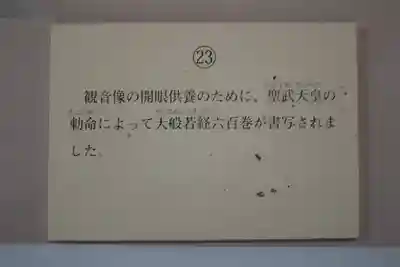 ㉓
観音像の開眼供養のために、聖武天皇の
勅命によって大般若経六百巻が書写されま
した。